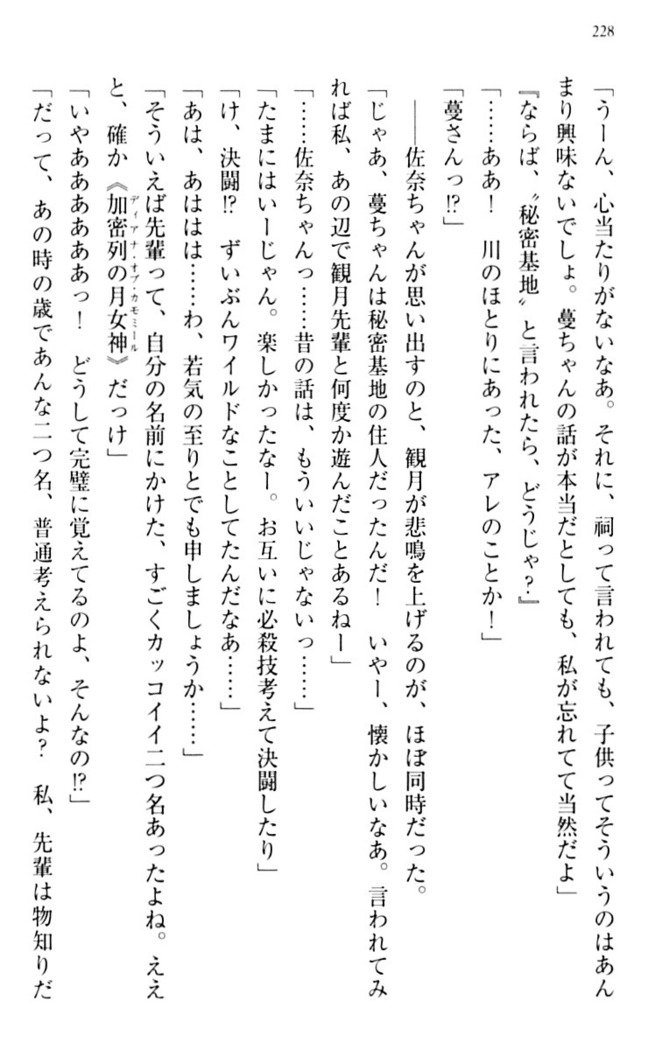 228
「うーん、心当たりがないなぁ。それに、祠って言われても、子供ってそういうのはあん
まり興味ないでしょ。蔓ちゃんの話が本当だとしても、私が忘れてて当然だよ」
『ならば、〝秘密基地〟と言われたら、どうじゃ？』
「……ああ！　川のほとりにあった、アレのことか！」
「蔓さんっ!?」
――佐奈ちゃんが思い出すのと、観月が悲鳴を上げるのが、ほぼ同時だった。
「じゃあ、蔓ちゃんは秘密基地の住人だったんだ！　いやー、懐かしいなぁ。言われてみ
れば私、あの辺で観月先輩と何度か遊んだことあるねー」
「……佐奈ちゃんっ……昔の話は、もういいじゃないっ……」
「たまにはいーじゃん。楽しかったなー。お互いに必殺技考えて決闘したり」
「け、決闘!?　ずいぶんワイルドなことしてたんだなぁ……」
「あは、あははは……わ、若気の至りとでも申しましょうか……」
「そういえば先輩って、自分の名前にかけた、すごくカッコイイ二つ名あったよね。ええ
と、確か《加密列の月女神》だっけ」
ディアナ・オブ・カモミール
「いやああああああっ！　どうして完璧に覚えてるのよ、そんなの!?」
「だって、あの時の歳であんな二つ名、普通考えられないよ？　私、先輩は物知りだ